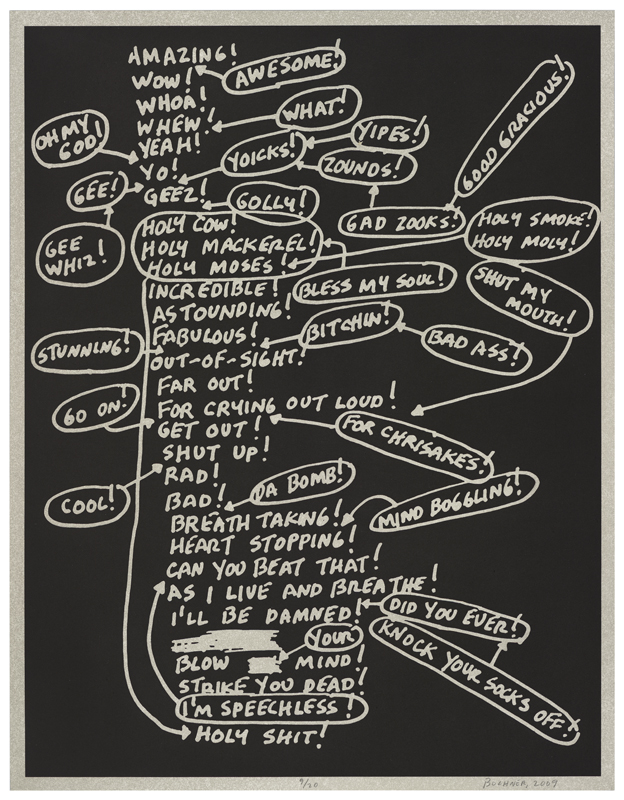 AMAZING!
AWESOME!
WOW!
WHOA!
WHAT!
WHEW!
OH MY
GOD!
YEAH!
YIPES!
YOICKS!
ZOUNDS!
GOOD GRACIOUS!
YO!
GEE!
GEEZ!
GOLLY!
GAD ZOOKS!
HOLY SMOKE!
HOLY MOLY!
GEE
WHIZ!
HOLY COW!
HOLY MACKEREL!
HOLY MOSES!
BLESS MY SOUL!
SHUT MY
MOUTH!
INCREDIBLE!
ASTOUNDING!
FABULOUS!
BITCHIN!
BAD ASS!
STUNNING!
OUT-OF-SIGHT!
FAR OUT!
FOR CRYING OUT LOUD!
GO ON!
GET OUT!
FOR CHRISAKES!
SHUT UP!
RAD!
COOL!
BAD!
DA BOMB!
MIND BOGGLING!
BREATH TAKING!
HEART STOPPING!
CAN YOU BEAT THAT!
AS I LIVE AND BREATHE!
I'LL BE DAMNED!
DID YOU EVER!
KNOCK YOUR SOCKS OFF!
YOUR
BLOW MIND!
STRIKE YOU DEAD!
I'M SPEECHLESS!
HOLY SHIT!
9/20